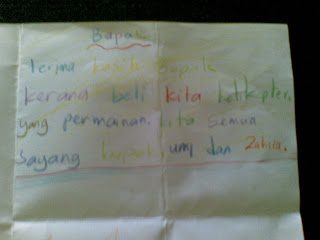 Bapak
Terima kasih Bapak
kerana beli kita helikpter
yang permainan. kita semua
sayang bapak, umi dan Zahira.